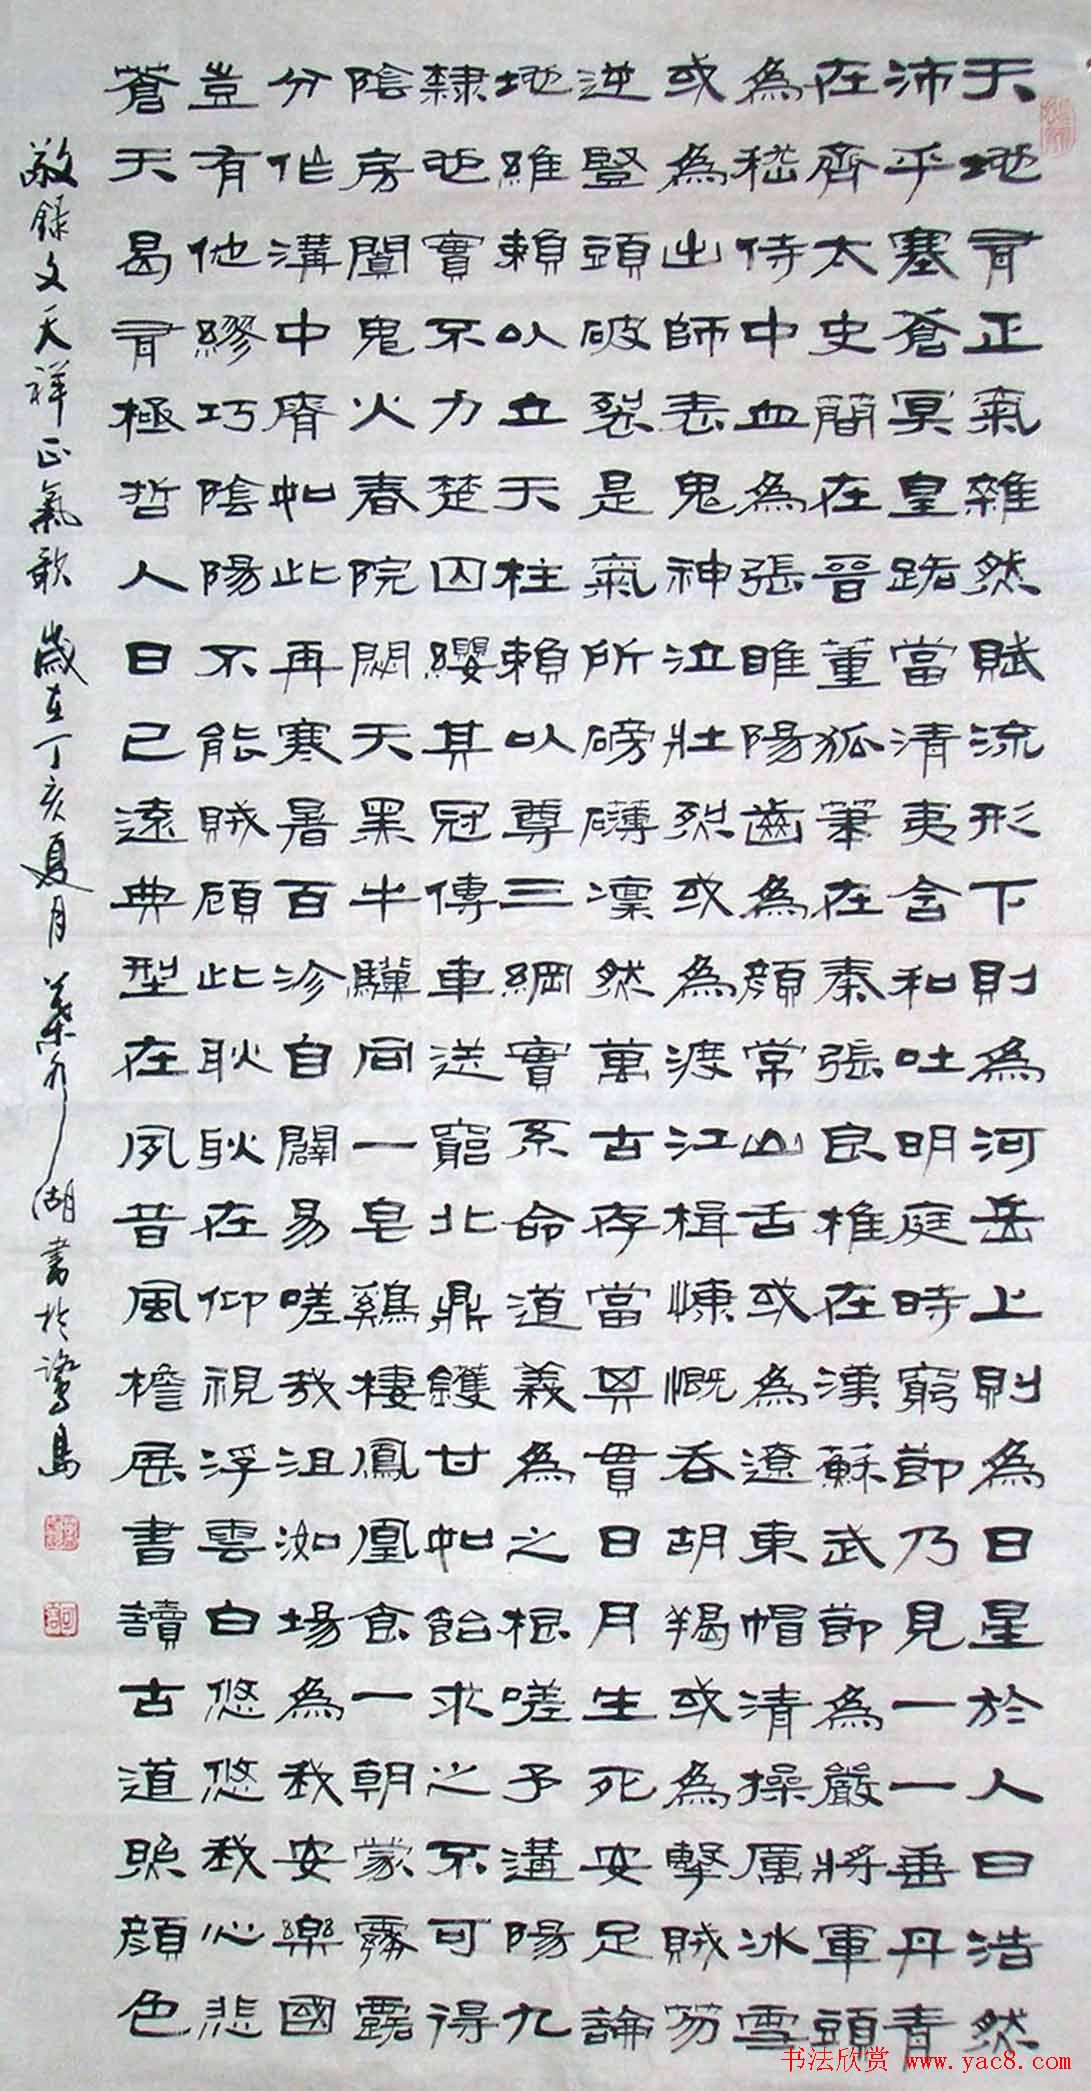 天地有正氣雜然賦流形下則為河岳上則為日星於人曰浩然
沛乎塞蒼冥皇路當清夷含和吐明庭時窮節乃見一一垂丹青
在齊太史簡在晉董狐筆在秦張良椎在漢蘇武節為嚴將軍頭
為嵇侍中血為張睢陽齒為顏常山舌或為遼東帽清操厲冰雪
或為出師表鬼神泣壯烈或為渡江楫慷慨吞胡羯或為擊賊笏
逆豎頭破裂是氣所磅礴凜然萬古存當其貫日月生死安足論
地維賴以立天柱賴以尊三綱實系命道義為之根嗟予遘陽九
隸也實不力楚囚纓其冠傳車送窮北鼎鑊甘如飴求之不可得
陰房闃鬼火春院閟天黑牛驥同一皂鷄棲鳳凰食一朝蒙霧露
分作溝中瘠如此再寒暑百沴自闢易嗟哉沮洳場為我安樂國
豈有他繆巧陰陽不能賊顧此耿耿在仰視浮雲白悠悠我心悲
蒼天曷有極哲人日已遠典型在夙昔風檐展書讀古道照顏色
敬錄文天祥正氣歌 歲在丁亥夏月 湖書於鷺島
书法欣赏 www.yac8.com